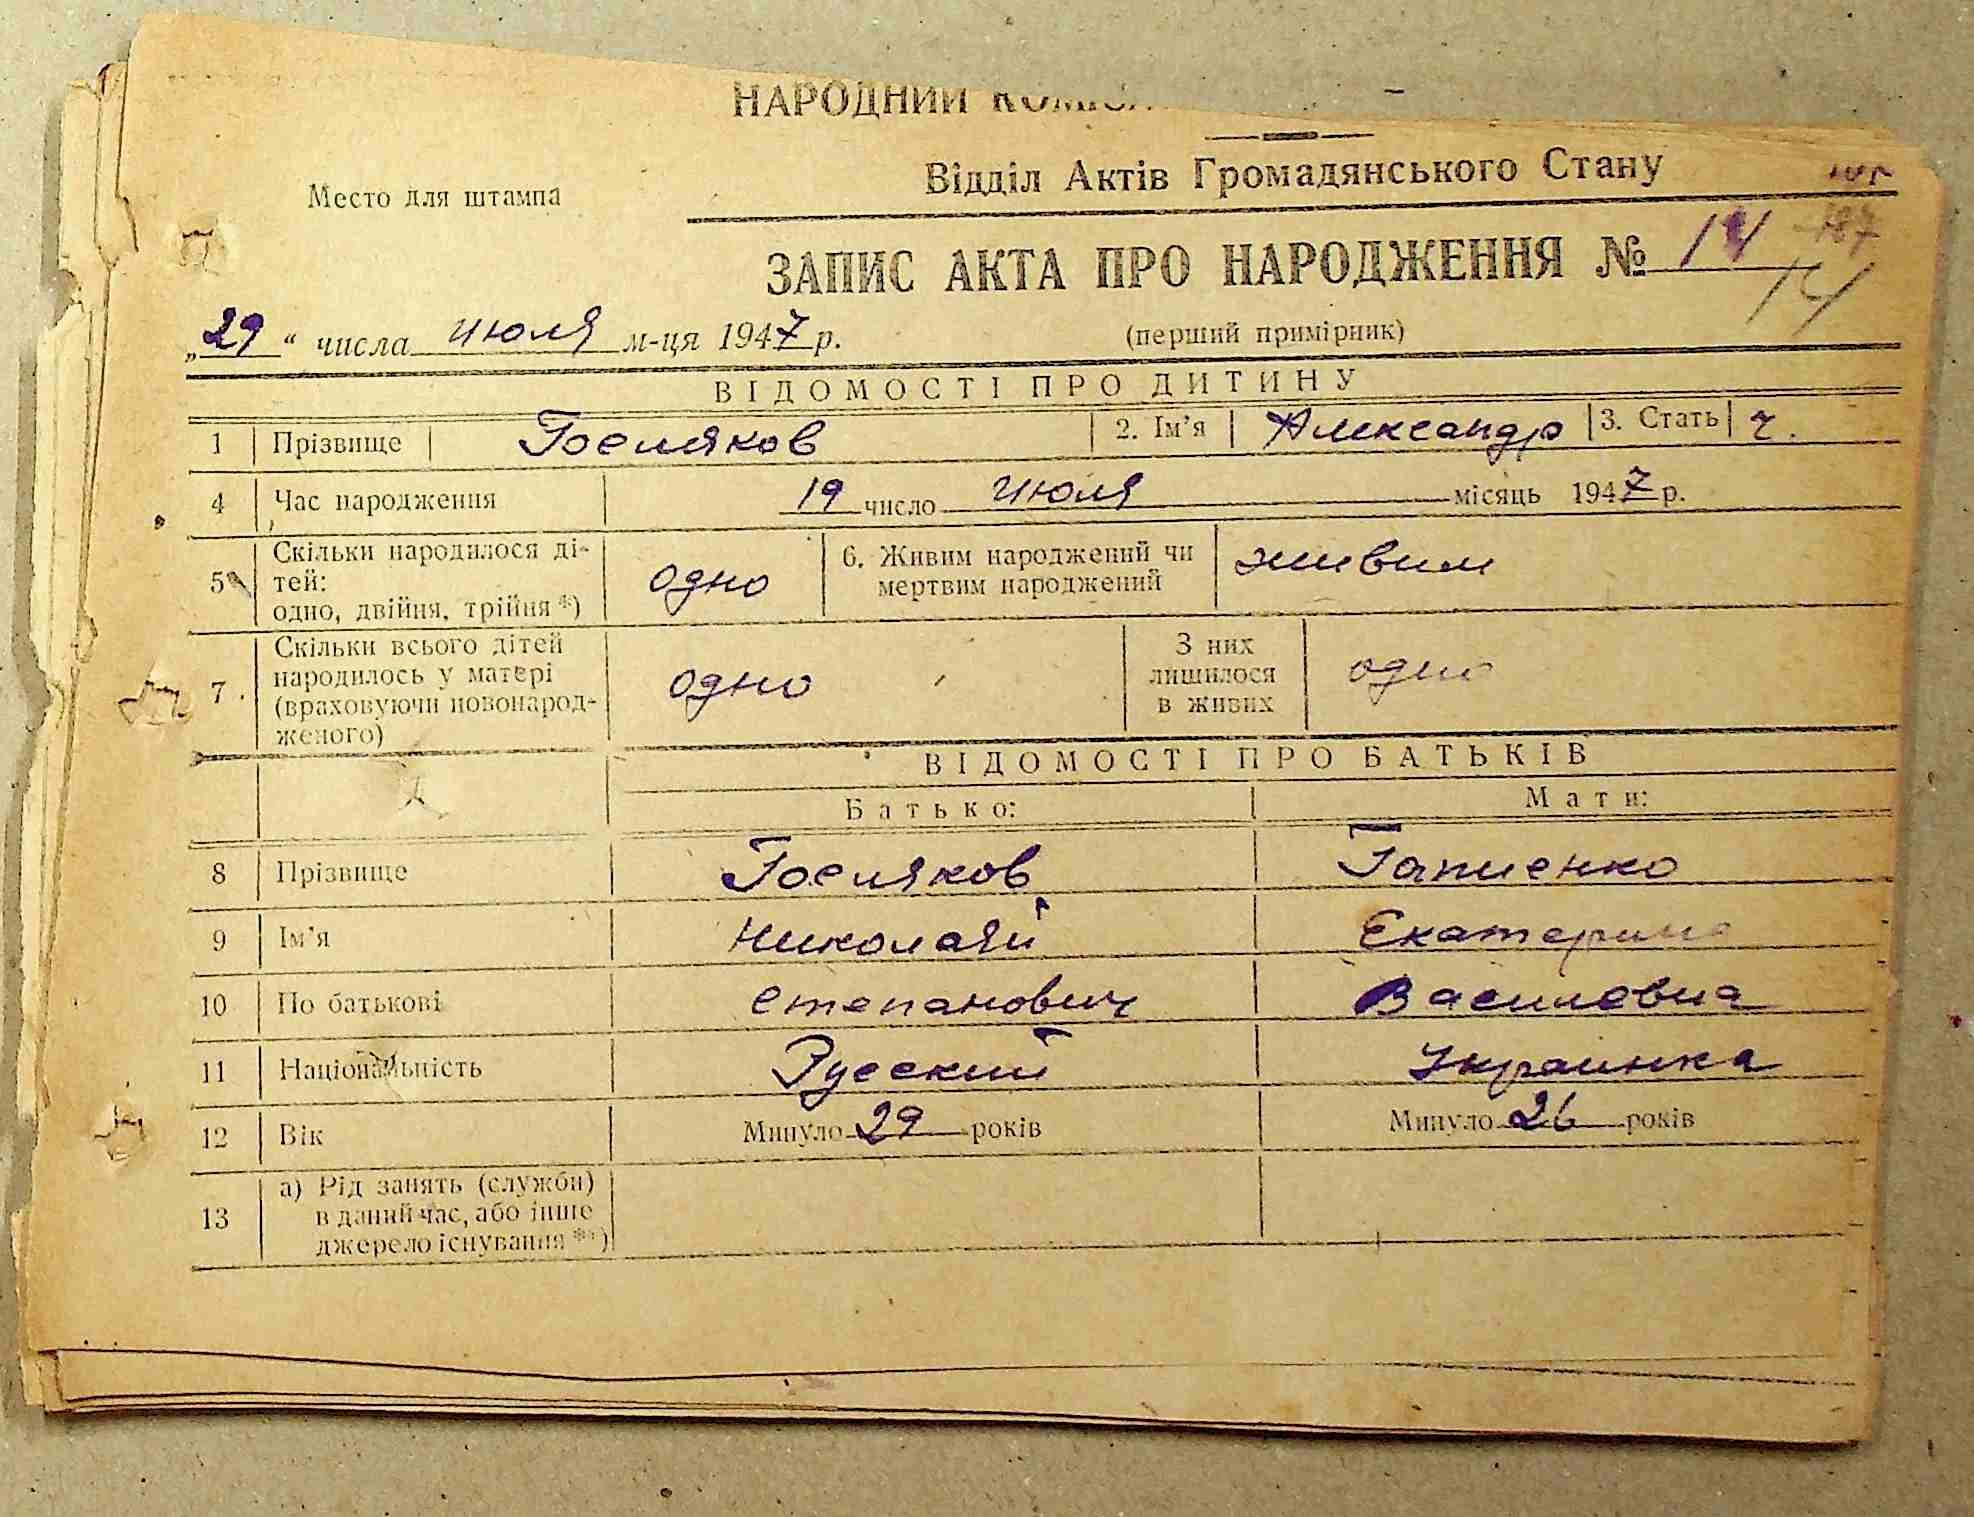 НАРОДНИЙ КОМІСА
Відділ Актів Громадянського Стану
Место для штампа
ЗАПИС АКТА ПРО НАРОДЖЕННЯ № 14 187
14
„29“ числа июля м-ця 1947 р. (перший примірник)
ВІДОМОСТІ ПРО ДИТИНУ
1 Прізвище Госмяков 2. Ім'я Александр 3. Стать ч.
4 Час народження 19 число июля місяць 1947 р.
5 Скільки народилося ді-
тей:
одно, двійня, трійня *) одно 6. Живим народжений чи
мертвим народжений живим
7 Скільки всього дітей
народилось у матері
(враховуючи новонарод-
женого) одно З них
лишилося
в живих одно
ВІДОМОСТІ ПРО БАТЬКІВ
Батько: Мати:
8 Прізвище Госмяков Гапиенко
9 Ім'я Николай Екатерина
10 По батькові Степанович Василевна
11 Національність Русский Украинка
12 Вік Минуло 29 років Минуло 26 років
13 а) Рід занять (служби)
в даний час, або інше
джерело існування **)